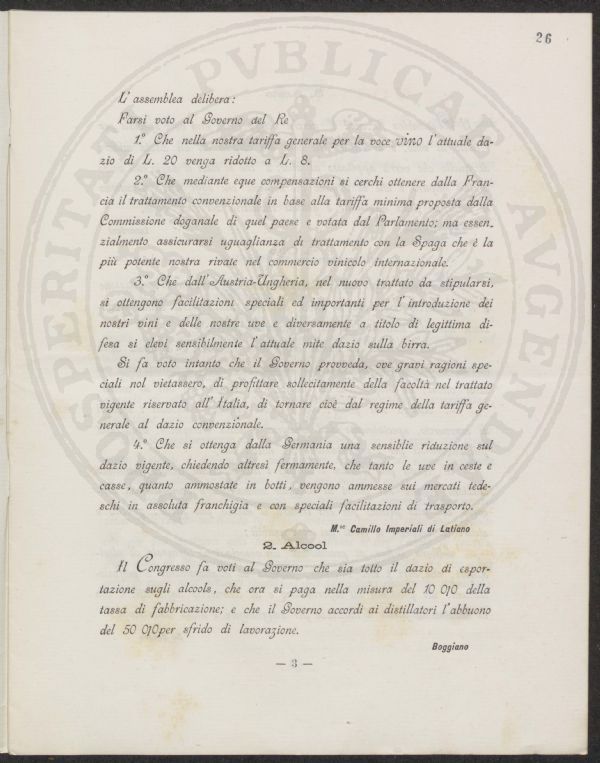 26
L' assemblea delibera:
Farsi voto al Governo del Re
1.° Che nella nostra tariffa generale per la voce vino l'attuale da-
zio di L. 20 venga ridotto a L. 8.
2.° Che mediante eque compensazioni si cerchi ottenere dalla Fran-
cia il trattamento convenzionale in base alla tariffa minima proposta dalla
Commissione doganale di quel paese e votata dal Parlamento; ma essen-
zialmento assicurarsi uguaglianza di trattamento con la Spaga che è la
più potente nostra rivate nel commercio vinicolo internazionale.
3.° Che dall'Austria-Ungheria, nel nuovo trattato da stipularsi,
si ottengono facilitazioni speciali ed importanti per l' introduzione dei
nostri vini e delle nostre uve e diversamente a titolo di legittima di-
fesa si elevi sensibilmente l'attuale mite dazio sulla birra.
Si fa voto intanto che il Governo provveda, ove gravi ragioni spe-
ciali nol vietassero, di profittare sollecitamente della facoltà nel trattato
vigente riservato all' Italia, di tornare cioè dal regime della tariffa ge-
nerale al dazio convenzionale.
4.° Che si ottenga dalla Germania una sensiblie riduzione sul
dazio vigente, chiedendo altresì fermamente, che tanto le uve in ceste e
casse, quanto ammostate in botti, vengono ammesse sui mercati tede-
schi in assoluta franchigia e con speciali facilitazioni di trasporto.
M.se Camillo Imperiali di Latiano
2. Alcool
Il Congresso fa voti al Governo che sia totto il dazio di espor-
tazione sugli alcools, che ora si paga nella misura del 10 0|0 della
tassa di fabbricazione; e che il Governo accordi ai distillatori l'abbuono
del 50 0|0 per sfrido di lavorazione.
Boggiano
— 3 —
PROSPERITATI PVBLICAE AVGENDAE